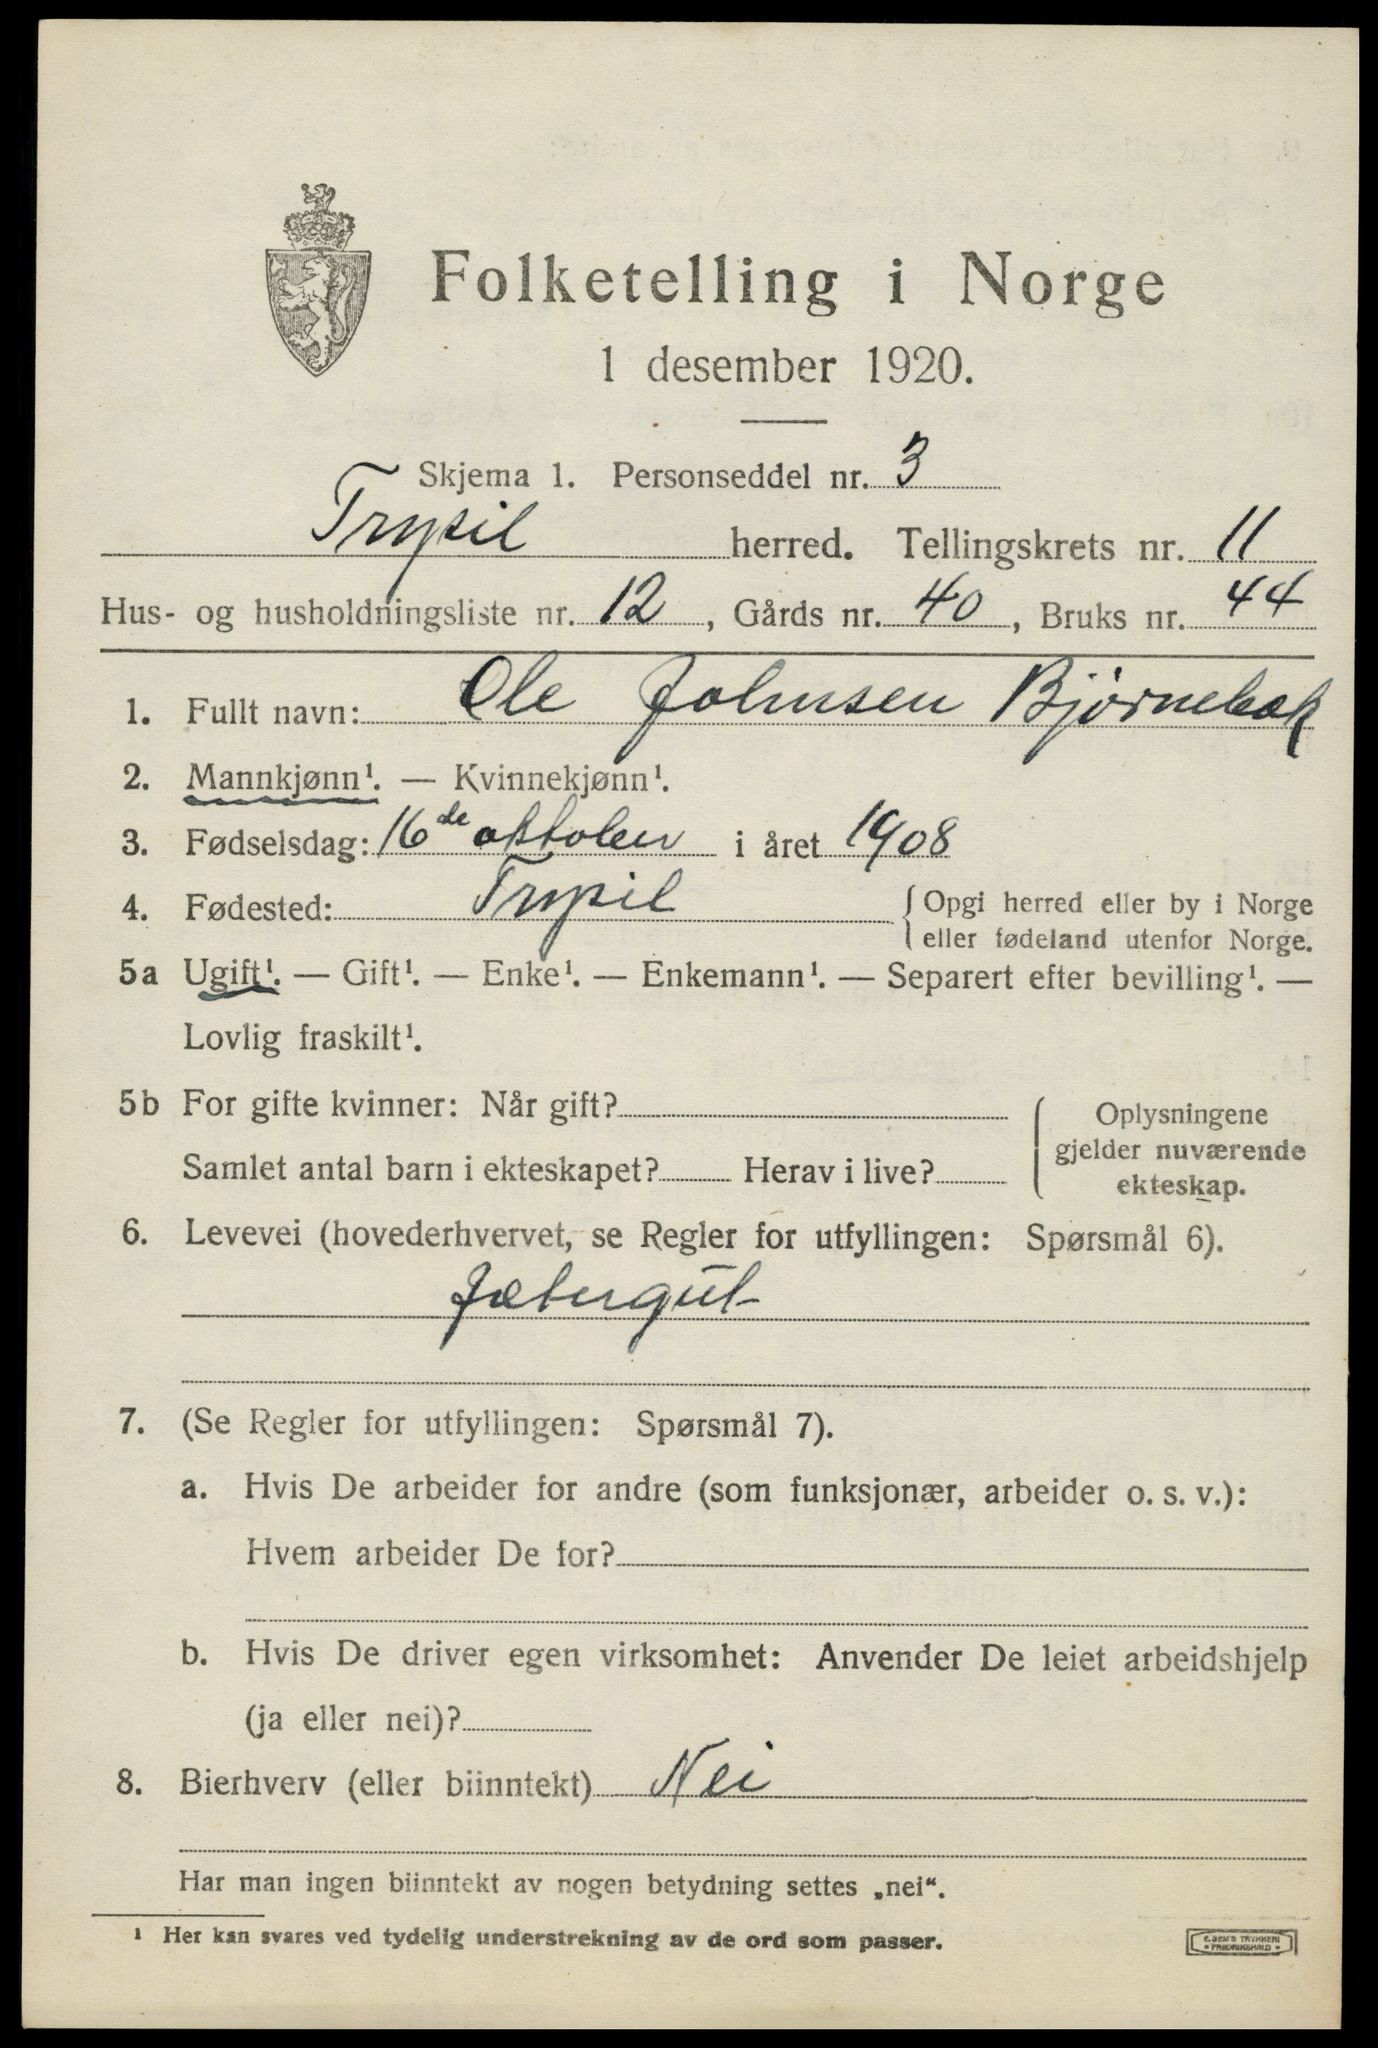 Folketelling i Norge
1 desember 1920.
Skjema 1. Personseddel nr. 3
Trysil herred. Tellingskrets nr. 11
Hus- og husholdningsliste nr. 12, Gårds nr. 40, Bruks nr. 44
1. Fullt navn: Ole Johnsen Bjørnebæk
2. Mannkjønn¹. — Kvinnekjønn¹.
3. Fødselsdag: 16de oktober i året 1908
4. Fødested: Trysil {Opgi herred eller by i Norge
eller fødeland utenfor Norge.
5a Ugift¹. — Gift¹. — Enke¹. — Enkemann¹. — Separert efter bevilling¹. —
Lovlig fraskilt¹.
5b For gifte kvinner: Når gift?
Samlet antal barn i ekteskapet? Herav i live?
Oplysningene
gjelder nuværende
ekteskap.
6. Levevei (hovederhvervet, se Regler for utfyllingen: Spørsmål 6).
Jætergut
7. (Se Regler for utfyllingen: Spørsmål 7).
a. Hvis De arbeider for andre (som funksjonær, arbeider o. s. v.):
Hvem arbeider De for?
b. Hvis De driver egen virksomhet: Anvender De leiet arbeidshjelp
(ja eller nei)?
8. Bierhverv (eller biinntekt) Nei
Har man ingen biinntekt av nogen betydning settes „nei“.
¹ Her kan svares ved tydelig understrekning av de ord som passer.
E. SEM'S TRYKKERI
• FREDRIKSHALD •